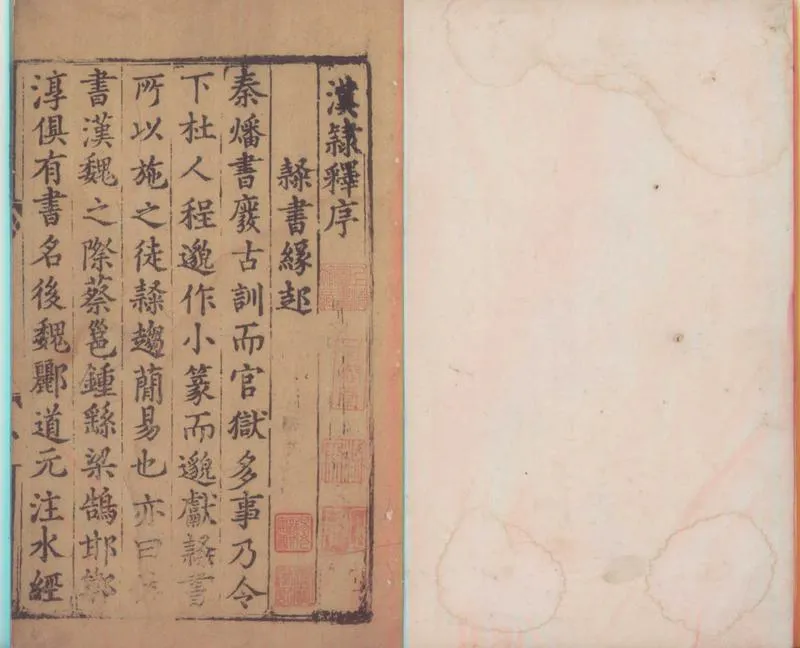 漢隸釋序
隸書緣起
秦燔書廢古訓而官獄多事乃令
下杜人程邈作小篆而邈獻隸書
所以施之徒隸趨簡易也亦曰
書漢魏之際蔡邕鍾繇梁鵠邯鄲
淳俱有書名後魏酈道元注水經